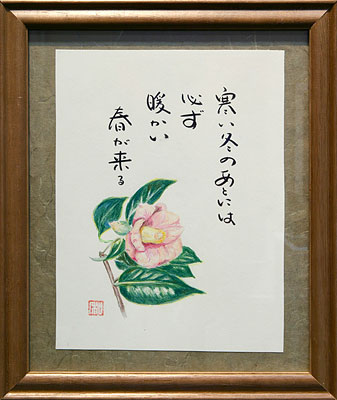 寒い冬のあとには
必ず
暖かい
春が来る